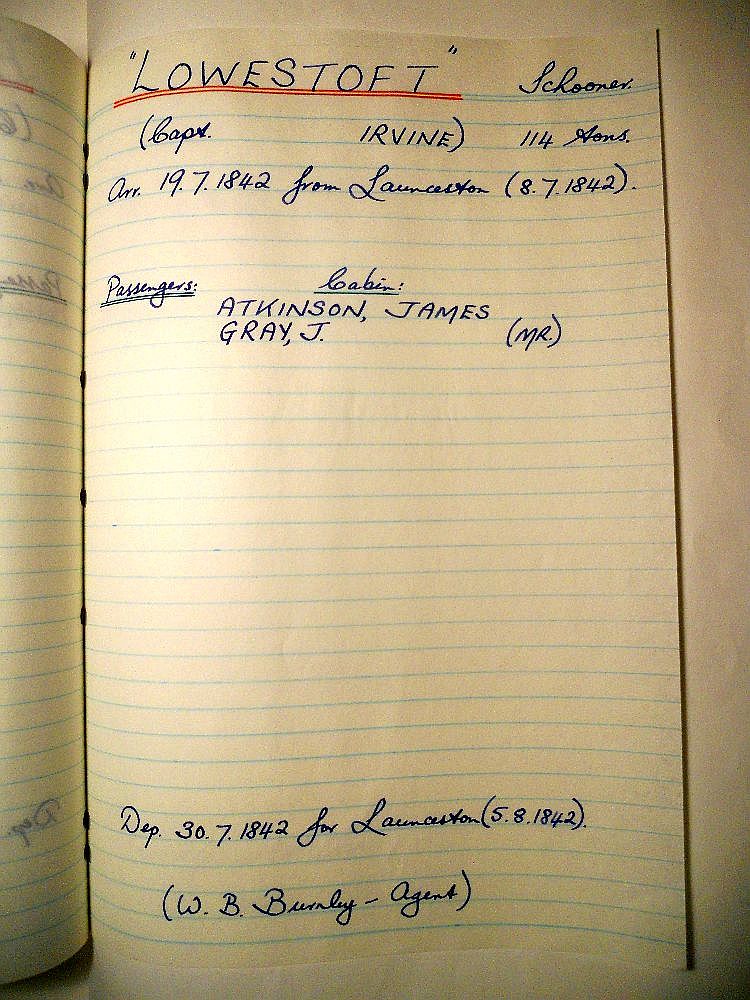 "LOWESTOFT" Schooner.
(Capt. IRVINE) 114 tons.
Arr. 19.7.1842 from Launceston (8.7.1842).
Passengers: Cabin:
ATKINSON, JAMES
GRAY, J. (MR.)
Dep. 30.7.1842 for Launceston (5.8.1842).
(W. B. Burnley - Agent)